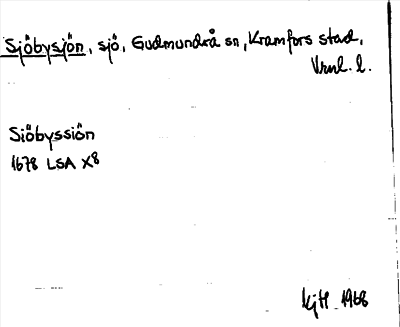 Sjöbysjön, sjö, Gudmundrå sn, Kramfors stad,
Vrnl. l.
Siöbyssiön
1678 LSA X8
1968